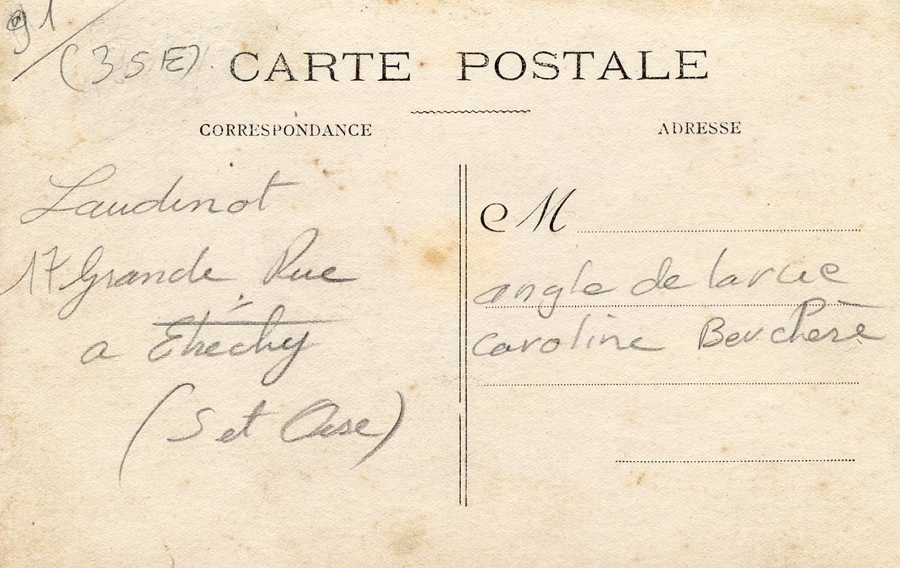 91
(35E)
CARTE POSTALE
CORRESPONDANCE
ADRESSE
Laudinot
17 Grande Rue
a Etréchy
(S et Oise)
M
angle de la rue
caroline Berchère